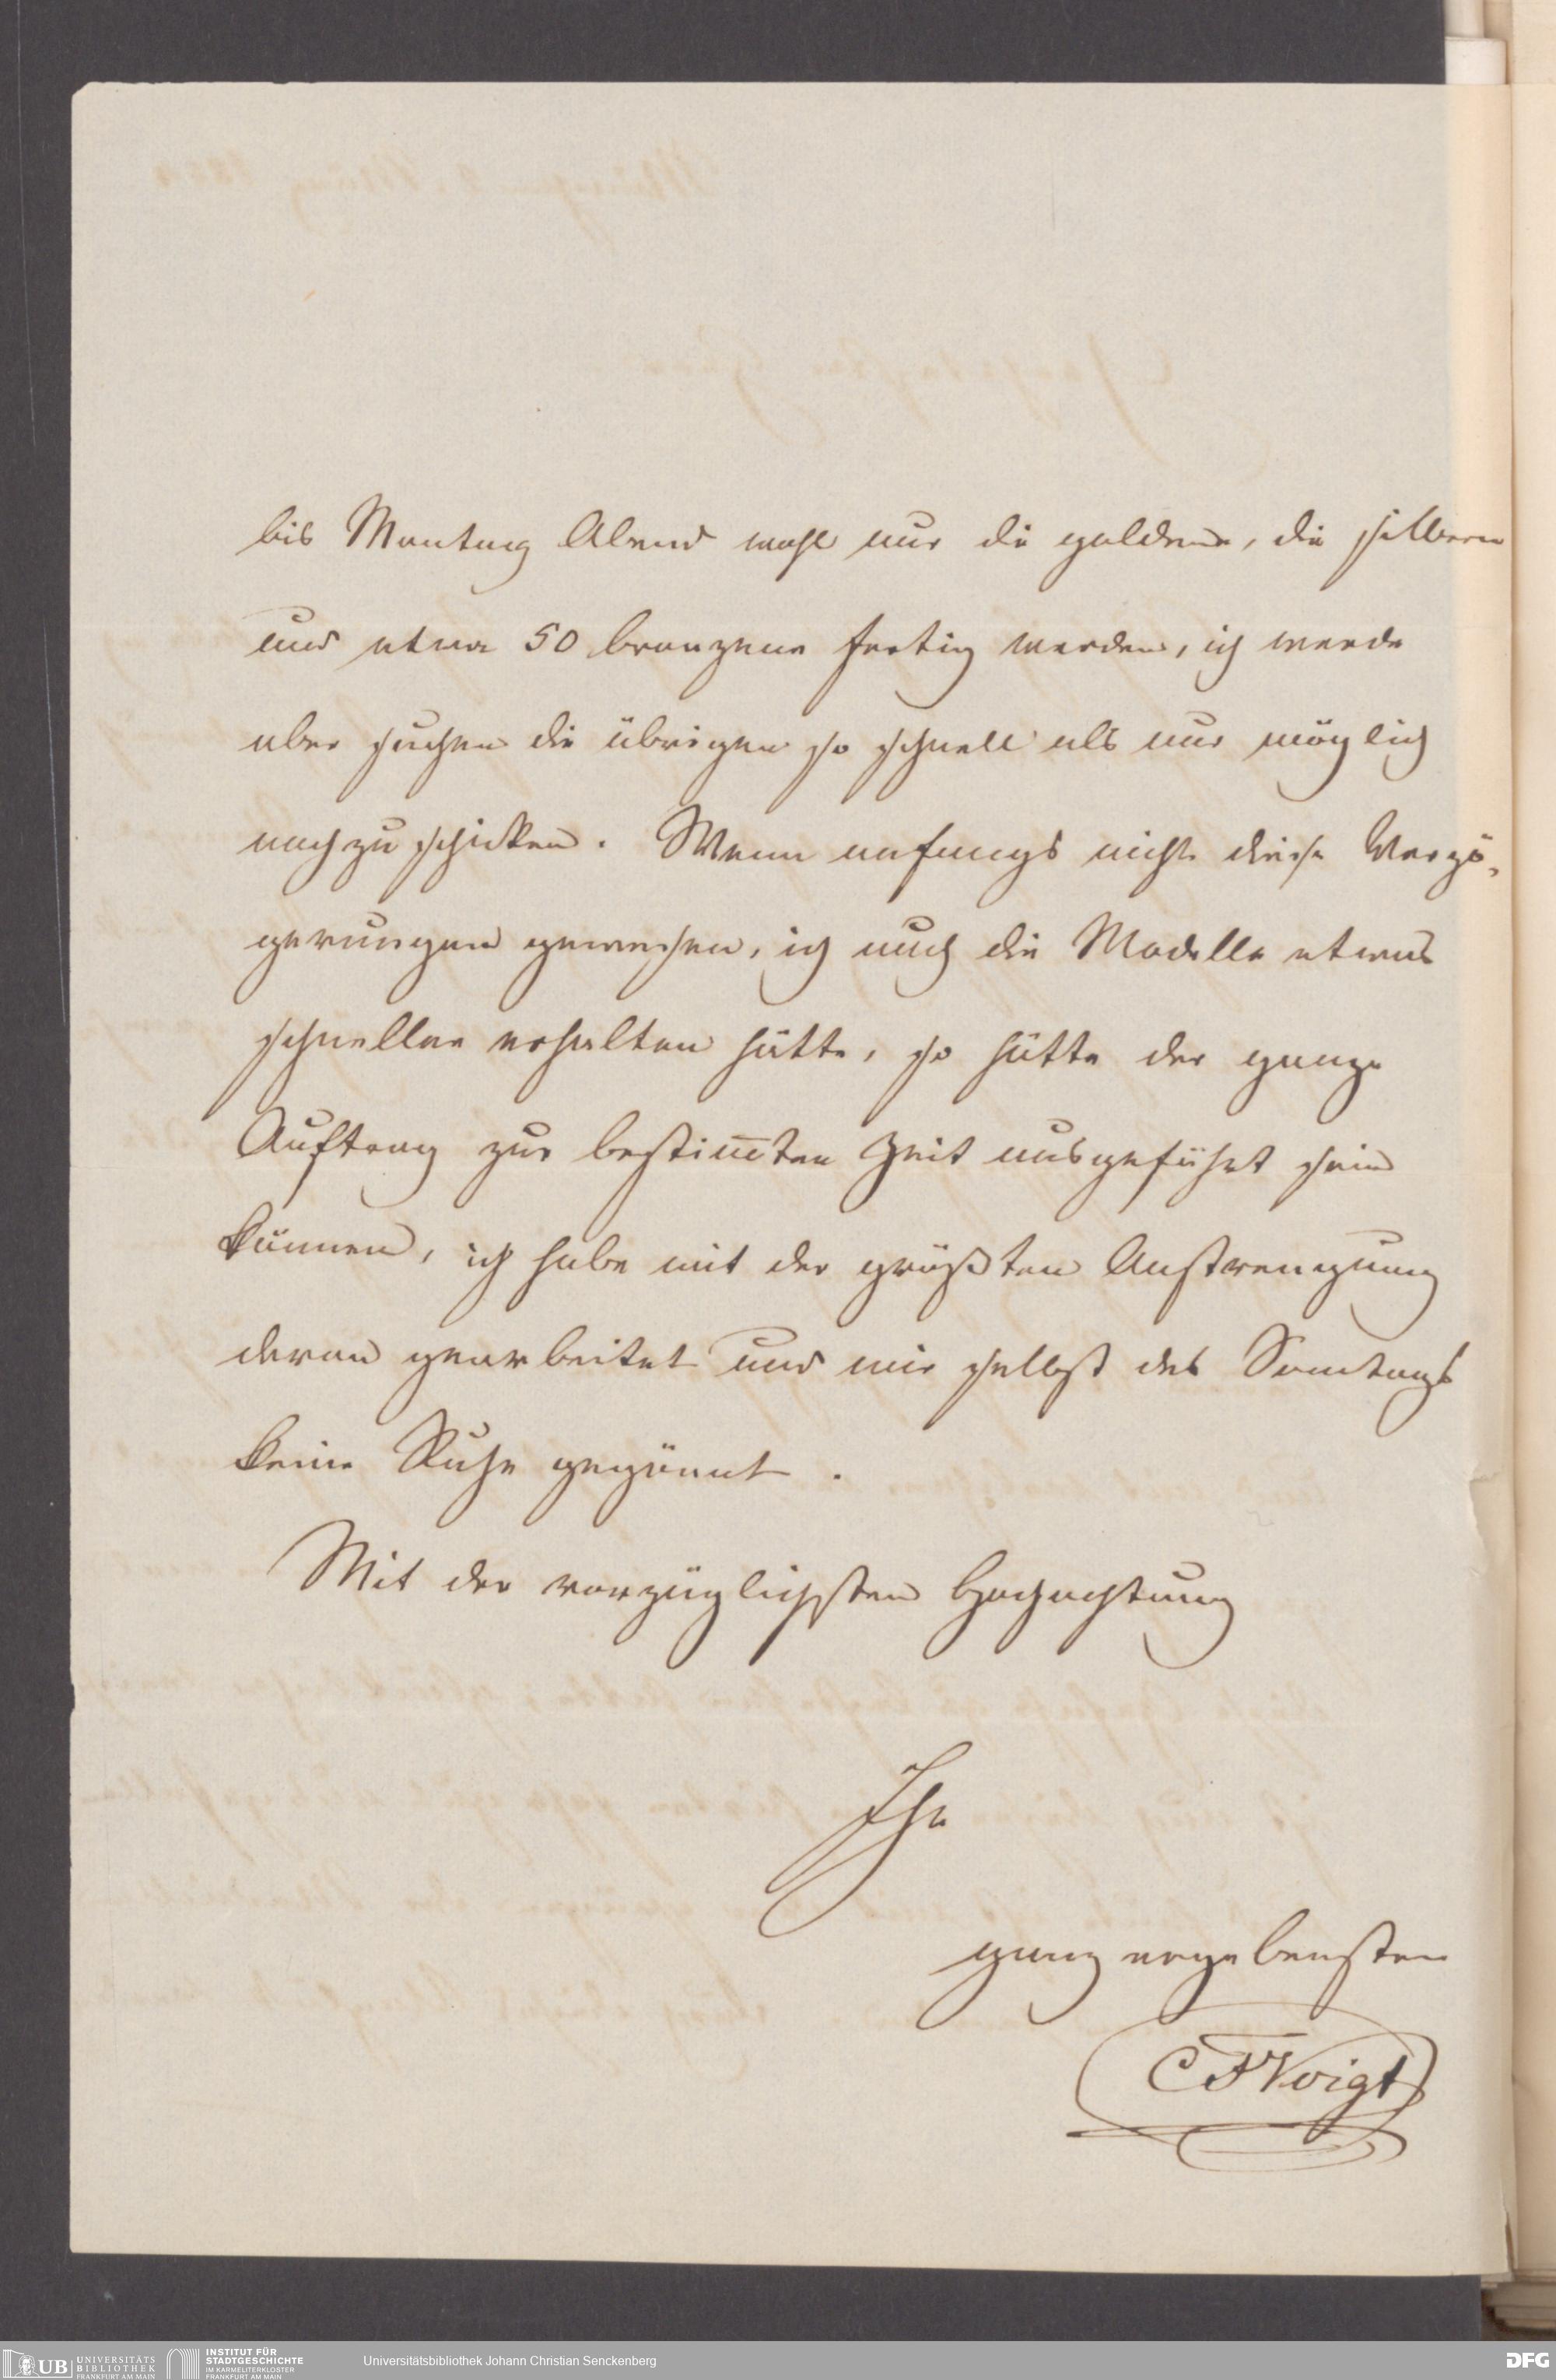 bis Montag Abend wohl nur die goldene, die silberne
und etwa 50 bronzene fertig werden, ich werde
aber suchen die übrigen so schnell als nur möglich
nachzuschicken. Wenn anfangs nicht diese Verzö-
gerungen gewesen, ich auch die Modelle etwas
schneller erhalten hätte, so hätte der ganze
Auftrag zur bestim̅ten Zeit ausgeführt sein
können, ich habe mit der größten Anstrengung
daran gearbeitet und mir selbst des Sonntags
keine Ruhe gegönnt.
Mit der vorzüglichsten Hochachtung
Ihr
ganz ergebenster
CFVoigt
UB UNIVERSITÄTS
BIBLIOTHEK
FRANKFURT AM MAIN
INSTITUT FÜR
STADTGESCHICHTE
IM KARMELITERKLOSTER
FRANKFURT AM MAIN
Universitätsbibliothek Johann Christian Senckenberg
DFG